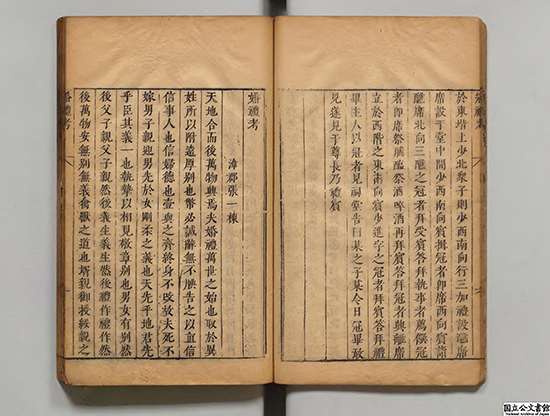 冠禮考
於東堦上少北衆子則少西南向行三加禮設醮席
席設于堂中間少西南向賓揖冠者即席西向賓詣
醮席北向三醮之冠者拜受賓答拜執事者薦饌冠
者即席祭脯醢祭酒啐酒再拜賓答拜冠者興離席
立於西階之東南向賓少進字之冠者拜賓答拜禮
畢主人以冠者見祠堂告曰某之子某今日冠畢敢
見遂見于尊長乃禮賓
婚禮考
漳郡張一棟
天地合而後萬物興焉夫婚禮萬世之始也取於異
姓所以附遠厚別也幣必誠辭無不腆告之以直信
信事人也信婦德也壹與之齊終身不改故夫死不
嫁男子親迎男先於女剛柔之義也天先乎地君先
乎臣其義一也執摯以相見敬章別也男女有別然
後父子親父子親然後義生義生然後禮作禮作然
後萬物安無別無義禽獸之道也壻親御授綏親之
婚禮考
国立公文書館
National Archives of Japan